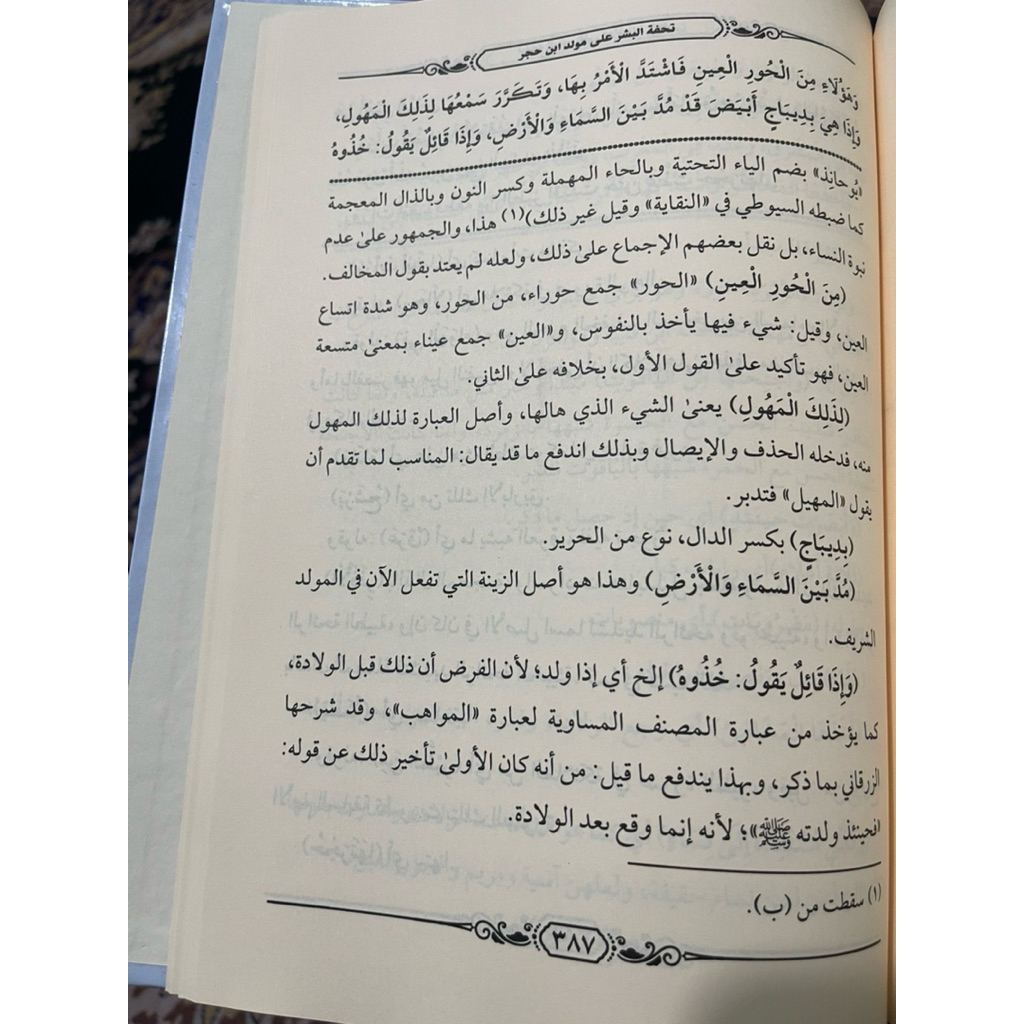 تحفة البشر على مولد ابن حجر
وَهَؤُلَاءِ مِنَ الْحُورِ الْعِينِ فَاشْتَدَّ الْأَمْرُ بِهَا، وَتَكَرَّرَ سَمْعُهَا لِذَلِكَ الْمَهُولِ،
فَإِذَا هِيَ بِدِيبَاجٍ أَبْيَضَ قَدْ مُدَّ بَيْنَ السَّمَاءِ وَالْأَرْضِ، وَإِذَا قَائِلٌ يَقُولُ: خُذُوهُ
«يُوحانِذ» بضم الياء التحتية وبالحاء المهملة وكسر النون وبالذال المعجمة
كما ضبطه السيوطي في «النقاية» وقيل غير ذلك)(١) هذا، والجمهور علىٰ عدم
نبوة النساء، بل نقل بعضهم الإجماع علىٰ ذلك، ولعله لم يعتد بقول المخالف.
(مِنَ الْحُورِ الْعِينِ) «الحور» جمع حوراء، من الحور، وهو شدة اتساع
العين، وقيل: شيء فيها يأخذ بالنفوس، و«العين» جمع عيناء بمعنىٰ متسعة
العين، فهو تأكيد علىٰ القول الأول، بخلافه علىٰ الثاني.
(لِذَلِكَ الْمَهُولِ) يعنىٰ الشيء الذي هالها، وأصل العبارة لذلك المهول
منه، فدخله الحذف والإيصال وبذلك اندفع ما قد يقال: المناسب لما تقدم أن
يقول «المهيل» فتدبر.
(بِدِيبَاجٍ) بكسر الدال، نوع من الحرير.
(مُدَّ بَيْنَ السَّمَاءِ وَالْأَرْضِ) وهذا هو أصل الزينة التي تفعل الآن في المولد
الشريف.
(وَإِذَا قَائِلٌ يَقُولُ: خُذُوهُ) إلخ أي إذا ولد؛ لأن الفرض أن ذلك قبل الولادة،
كما يؤخذ من عبارة المصنف المساوية لعبارة «المواهب»، وقد شرحها
الزرقاني بما ذكر، وبهذا يندفع ما قيل: من أنه كان الأولىٰ تأخير ذلك عن قوله:
«فحينئذ ولدته ﷺ»؛ لأنه إنما وقع بعد الولادة.
(١) سقطت من (ب).
٣٨٧